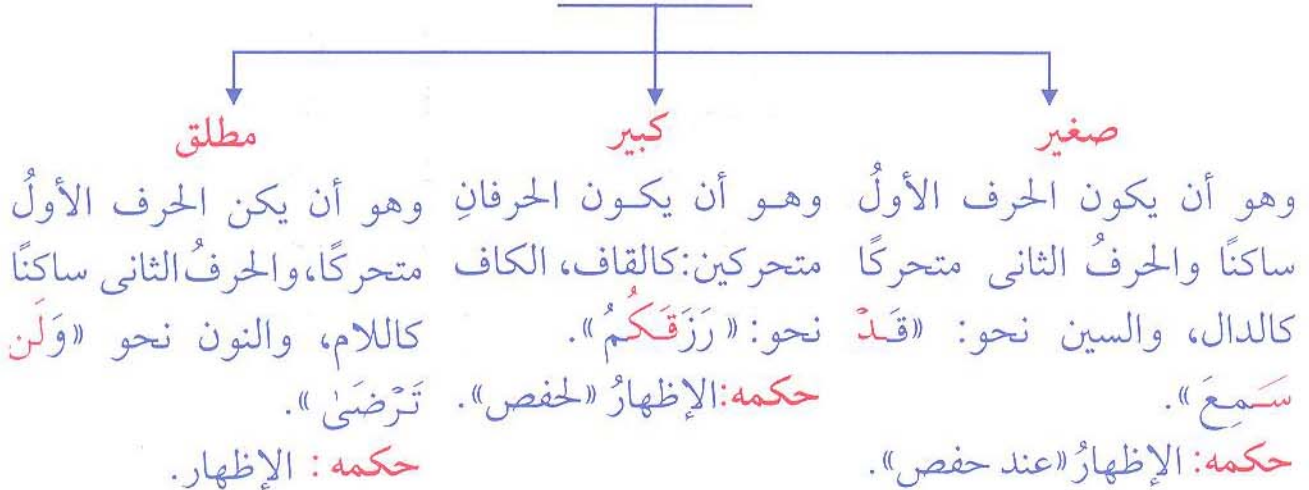 صغير
وهو أن يكون الحرف الأولُ
ساكنًا والحرفُ الثانى متحركًا
كالدال، والسين نحو: «قَـدْ
سَـمِـعَ».
حكمه: الإظهارُ «عند حفص».
كبير
وهـو أن يكـون الحرفانِ
متحركين:كالقاف، الكاف
نحو: «رَزَقَـكُمُ».
حكمه:الإظهارُ «لحفص».
مطلق
وهو أن يكن الحرف الأولُ
متحركًا،والحرفُ الثانى ساكنًا
كاللام، والنون نحو «وَلَن
تَـرْضَىٰ».
حكمه : الإظهار.